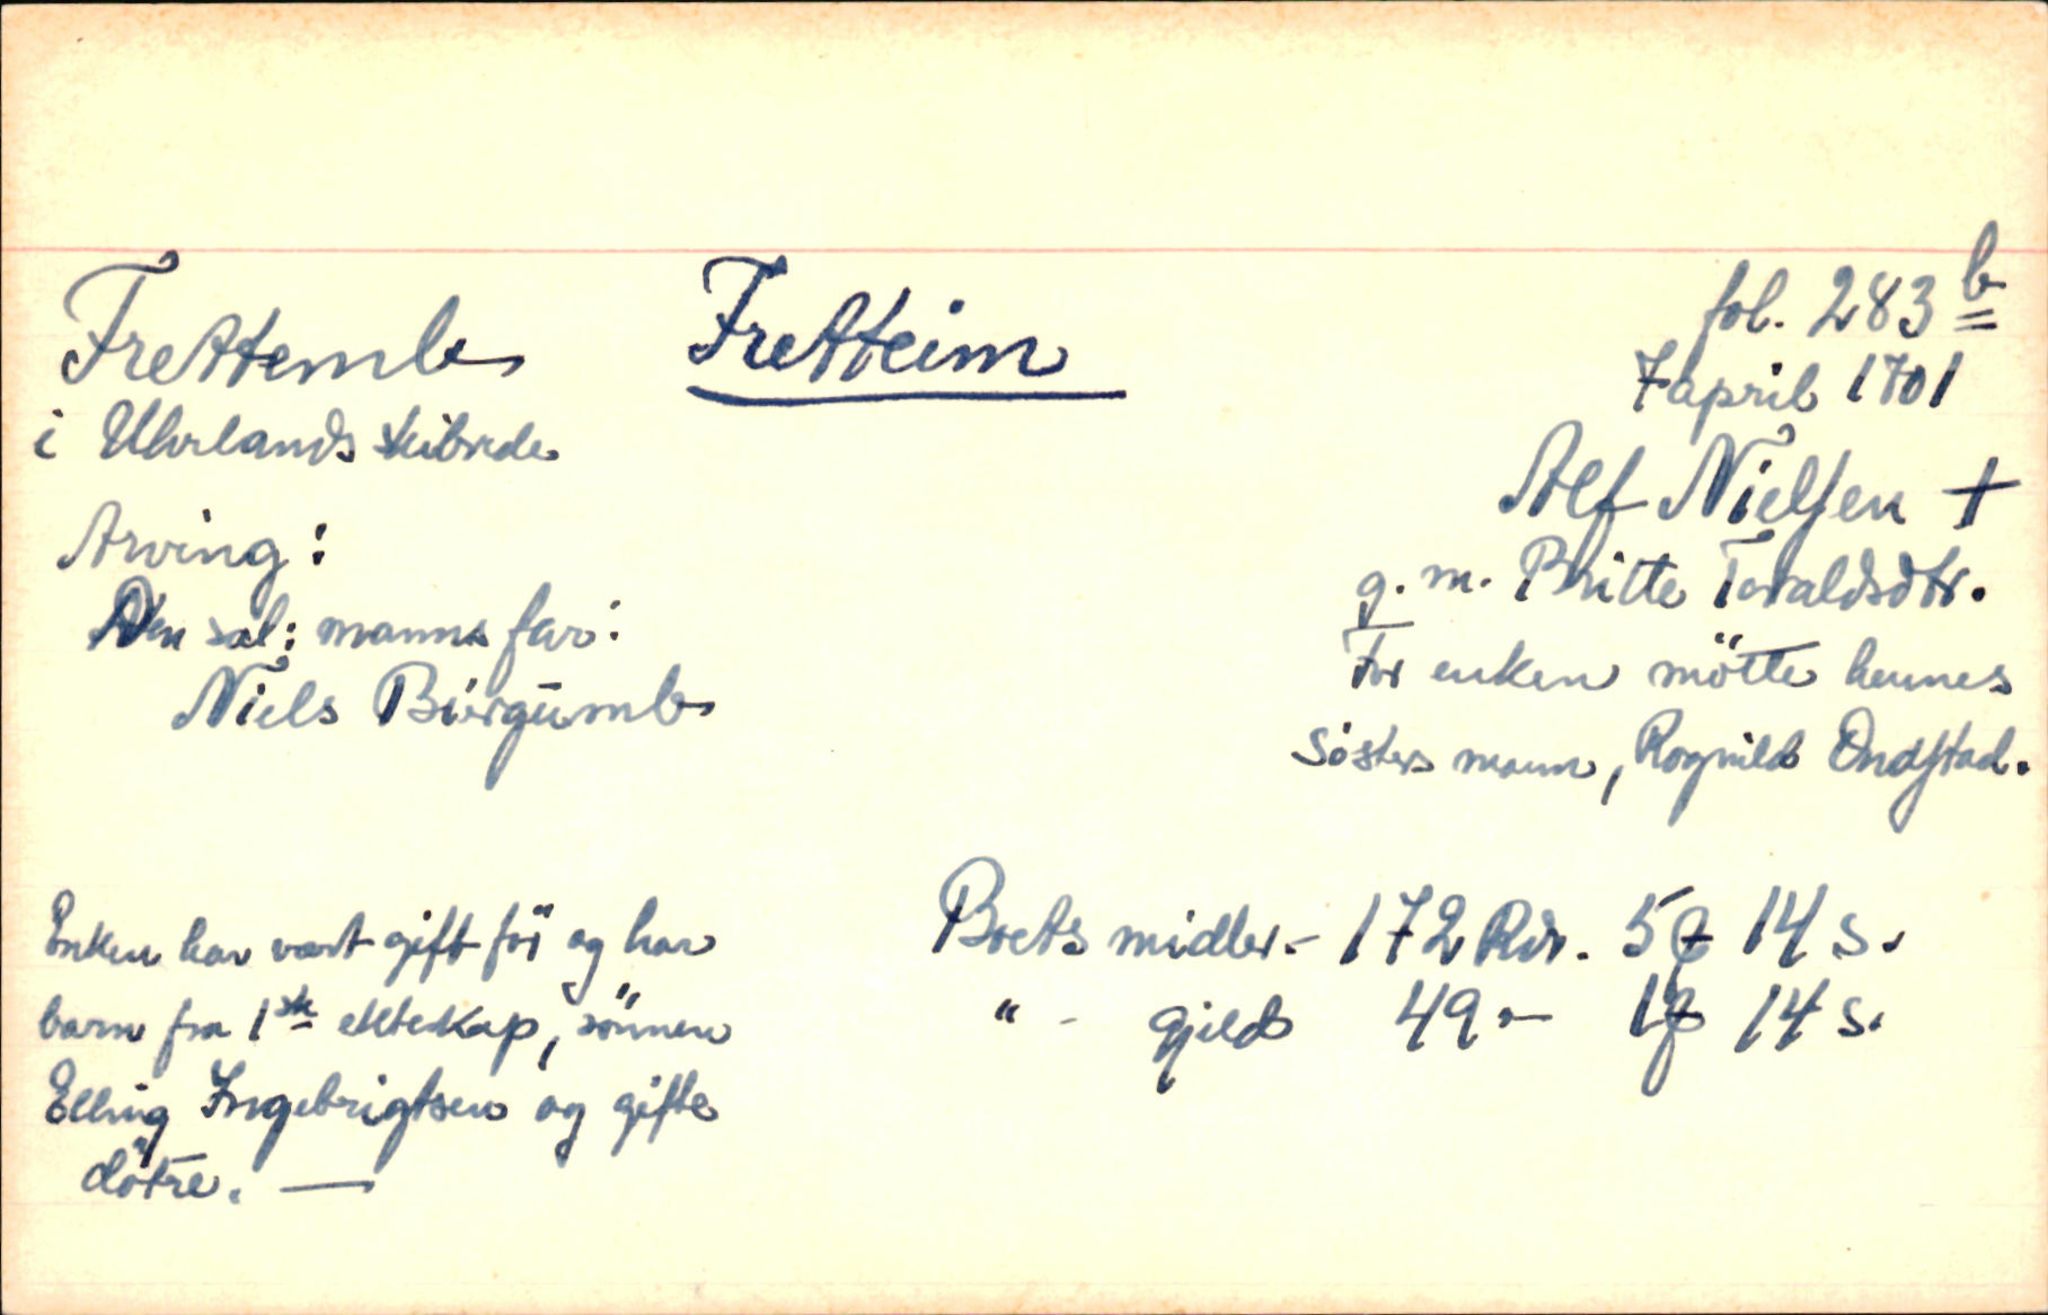 Frettemb Fretteim fol. 283 b
7 april 1701
i Uhrlands skibrede
Alf Nielsen +
Arving:
g. m. Britte Toraldsdtr.
Den sal: manns far:
For enken mötte hennes
Niels Biørgumb
sösters mann, Rognild Ondstad.
Enken har vært gift för og har
barn fra 1ste ekteskap, sönnen
Elling Ingebrigtsen og gifte
dötre. —
Boets midler - 172 Rdr. 5 14 s.
" - gjeld 49 - 1 14 s.